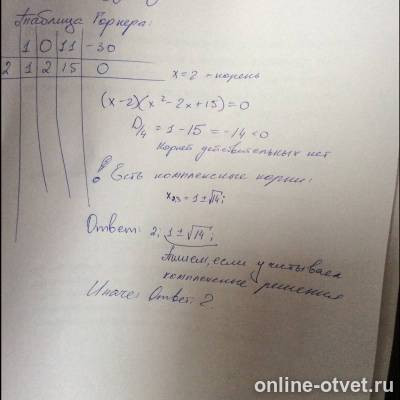 Таблица Горнера:
1 0 11 -30
2 1 2 15 0
x=2 - корень
(x-2)(x²-2x+15)=0
D/4 = 1-15 = -14 < 0
Корней действительных нет
! Есть комплексные корни:
x₂,₃ = 1±√14;
Ответ: 2; 1±√14;
Пишем, если учитываем
комплексные решения
Иначе: Ответ: 2
online-otvet.ru